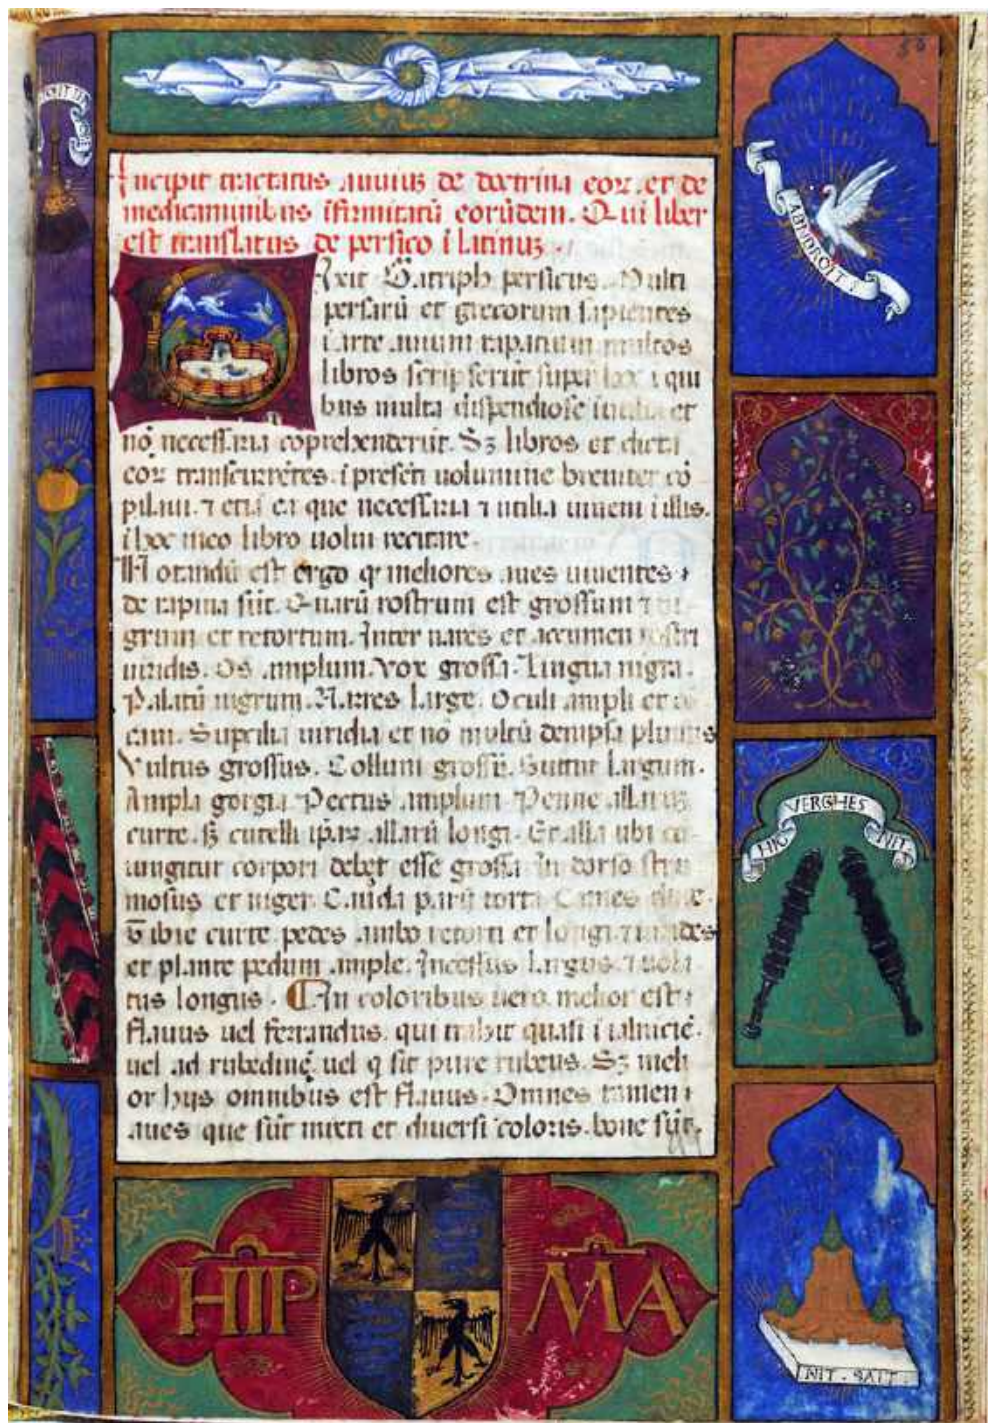 50
1
Incipit tractatus auiuz de doctrina eorz. et de
medicaminibus ifirmitatū eorūdem. Qui liber
est translatus de persico i latinuz.
Dixit Gatriph persicus. Multi
persarū et grecorum sapientes
i arte auium rapatium multos
libros scripserūt super hoc i qui
bus multa dispendiose inutilia et
nō necessaria cōprehenderūt. Sz libros et dicta
eorz transcurrētes. i presēti uolumine breuiter cō
pilaui. ⁊ etiā ea que necessaria ⁊ utilia inueni i illis.
i hoc meo libro uolui recitare.
Notandū est ergo qr meliores aues uiuentes
de rapina sūt. Quarū rostrum est grossum ⁊ ni
grum et retortum. Inter nares et acumen rostri
uiridis. Os amplum. Vox grossa. Lingua nigra.
Palatū nigrum. Nares large. Oculi ampli et
Supcilia uiridia et nō multū dempsa plumis
Vultus grossus. Collum grossū. Guttur largum.
Ampla gorgia. Pectus amplum. Penne allaruz
curte. sz cutelli ipaz allarū longi. Et alla ubi co
iungitur corpori debet esse grossa. In dorso
mosus et niger. Cauda parū torta. Carnes dure.
Tibie curte. pedes ambo retorti et longi. ⁊ uirides
et plante pedum ample. Incessus largus. ⁊ uola
tus longus. In coloribus uero. melior est
flauus uel ferrandus. qui trahit quasi i
uel ad rubedinē. uel q sit pure rubeus. Sz meli
or hijs omnibus est flauus. Omnes tamen
aues que sūt mixti et diuersi coloris. bone sūt.
AB INDROIT
HIC VERGHES NIT
HIP MA
NIT . SALT